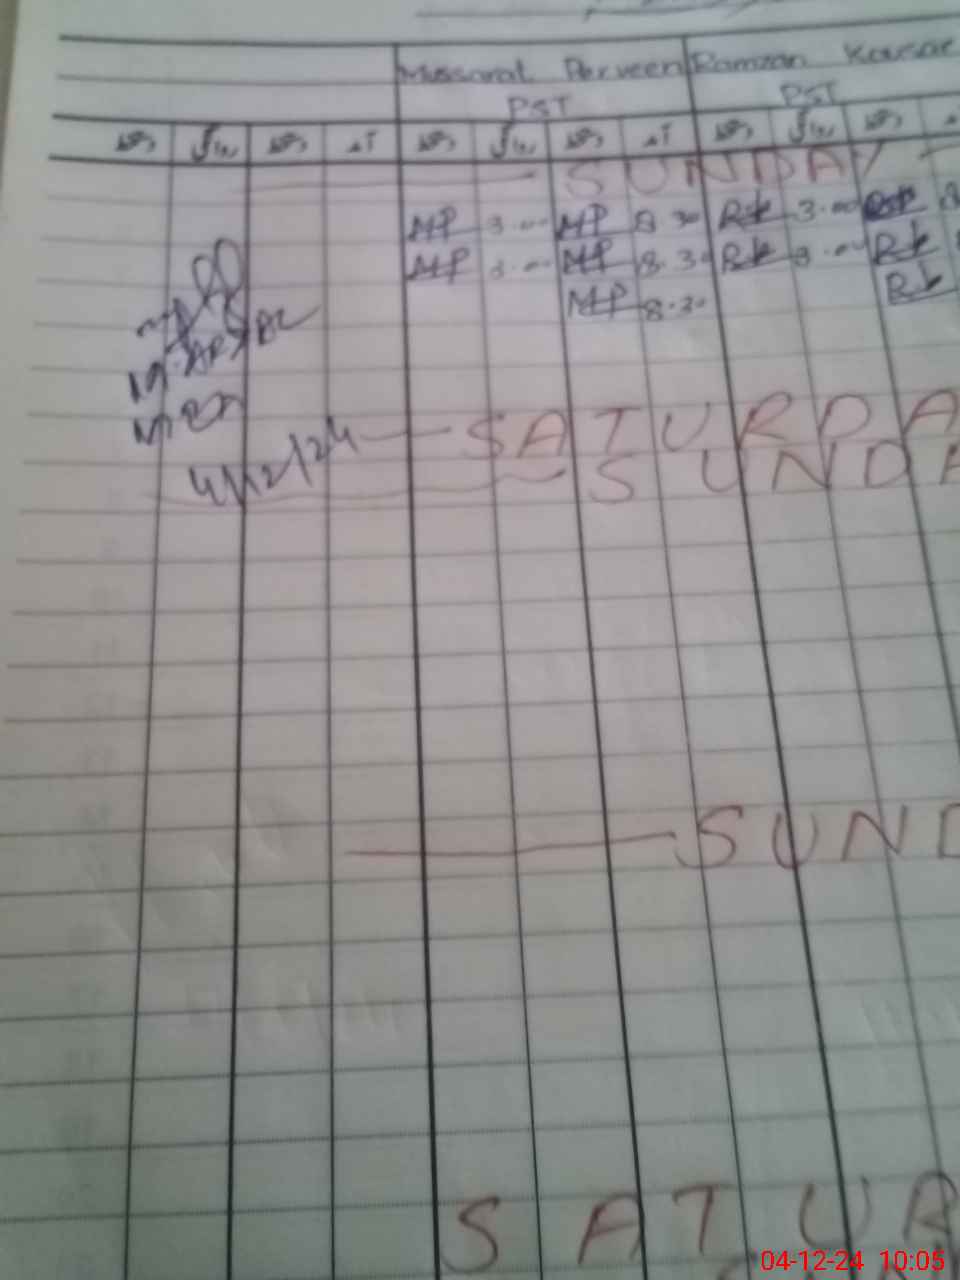 Mussarat Perveen Ramzan Kousar
PST PST
دستخط روانگی دستخط آمد دستخط روانگی دستخط آمد دستخط روانگی دستخط
SUNDAY
MP 3.00 MP 8.30 Rk 3.00
MP 3.00 MP 8.30 Rk 3.00 Rk
MP 8.30 Rk
4/12/24
SATURDA
SUNDA
SUND
SATUR
04-12-24 10:05